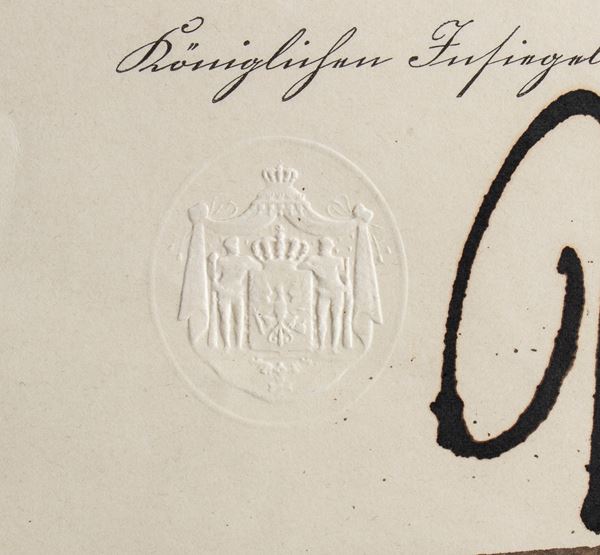 Königlichen Insiegel